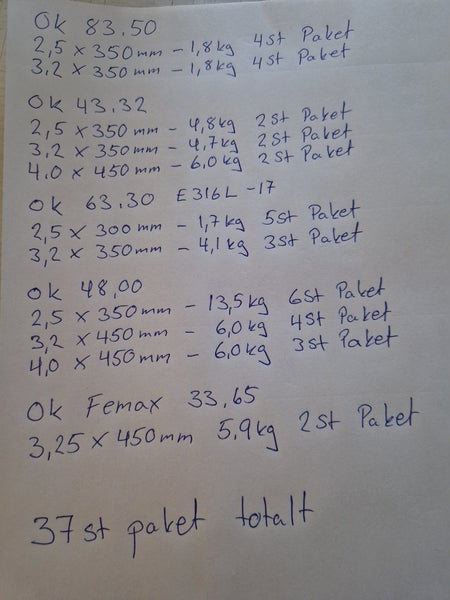 Ok 83.50
2,5 x 350mm - 1,8kg 4st Paket
3,2 x 350mm - 1,8kg 4st Paket
Ok 43.32
2,5 x 350mm - 4,8kg 2st Paket
3,2 x 350mm - 4,7kg 2st Paket
4.0 x 450mm - 6,0kg 2st Paket
Ok 63.30 E316L -17
2,5 x 300mm - 1,7kg 5st Paket
3,2 x 350mm - 4,1kg 3st Paket
Ok 48,00
2,5 x 350mm - 13,5kg 6st Paket
3,2 x 450mm - 6,0kg 4st Paket
4,0 x 450mm - 6,0kg 3st Paket
Ok Femax 33,65
3,25 x 450mm 5,9kg 2st Paket
37st paket totalt